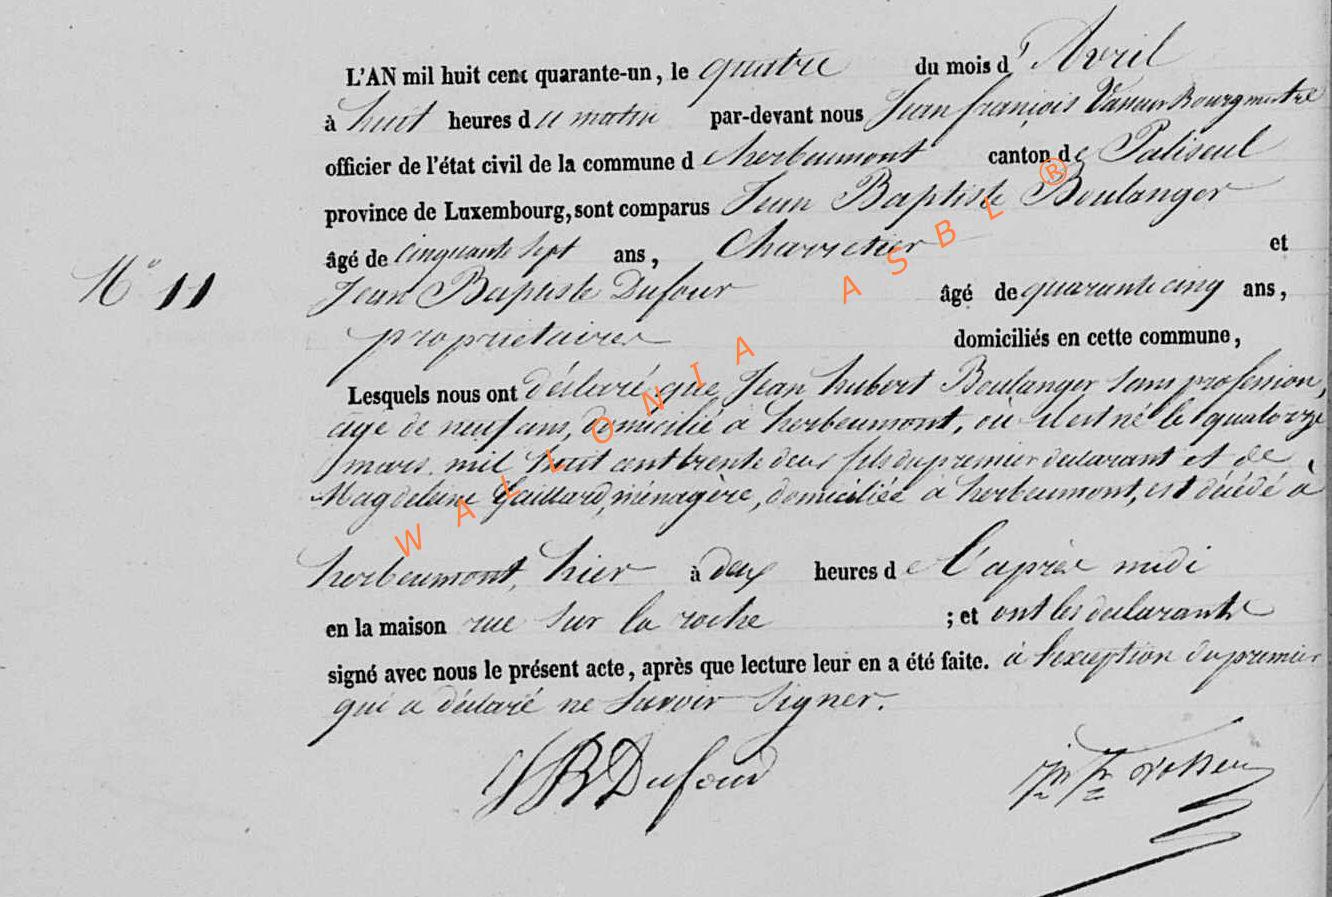 L'AN mil huit cent quarante-un, le quatre du mois d'Avril
à huit heures du matin par-devant nous Jean françois Bourgmestre
officier de l'état civil de la commune d'herbeumont canton de Paliseul
province de Luxembourg, sont comparus Jean Baptiste Boulanger
âgé de cinquante sept ans, Charretier et
N° 11
Jean Baptiste Dufour âgé de quarante cinq ans,
propriétaire domiciliés en cette commune,
Lesquels nous ont déclaré que Jean hubert Boulanger sans profession,
âgé de neuf ans, domicilié à herbeumont, où il est né le quatorze
mars mil huit cent trente deux fils du premier déclarant et de
Magdelaine Gaillard, ménagère, domiciliée a herbeumont, est décédé à
herbeumont, hier à deux heures de l'après midi
en la maison rue sur la roche ; et ont les déclarants
signé avec nous le présent acte, après que lecture leur en a été faite. à l'exception du premier
qui a déclaré ne savoir signer.
JB Dufour
WALLONIA ASBL ®